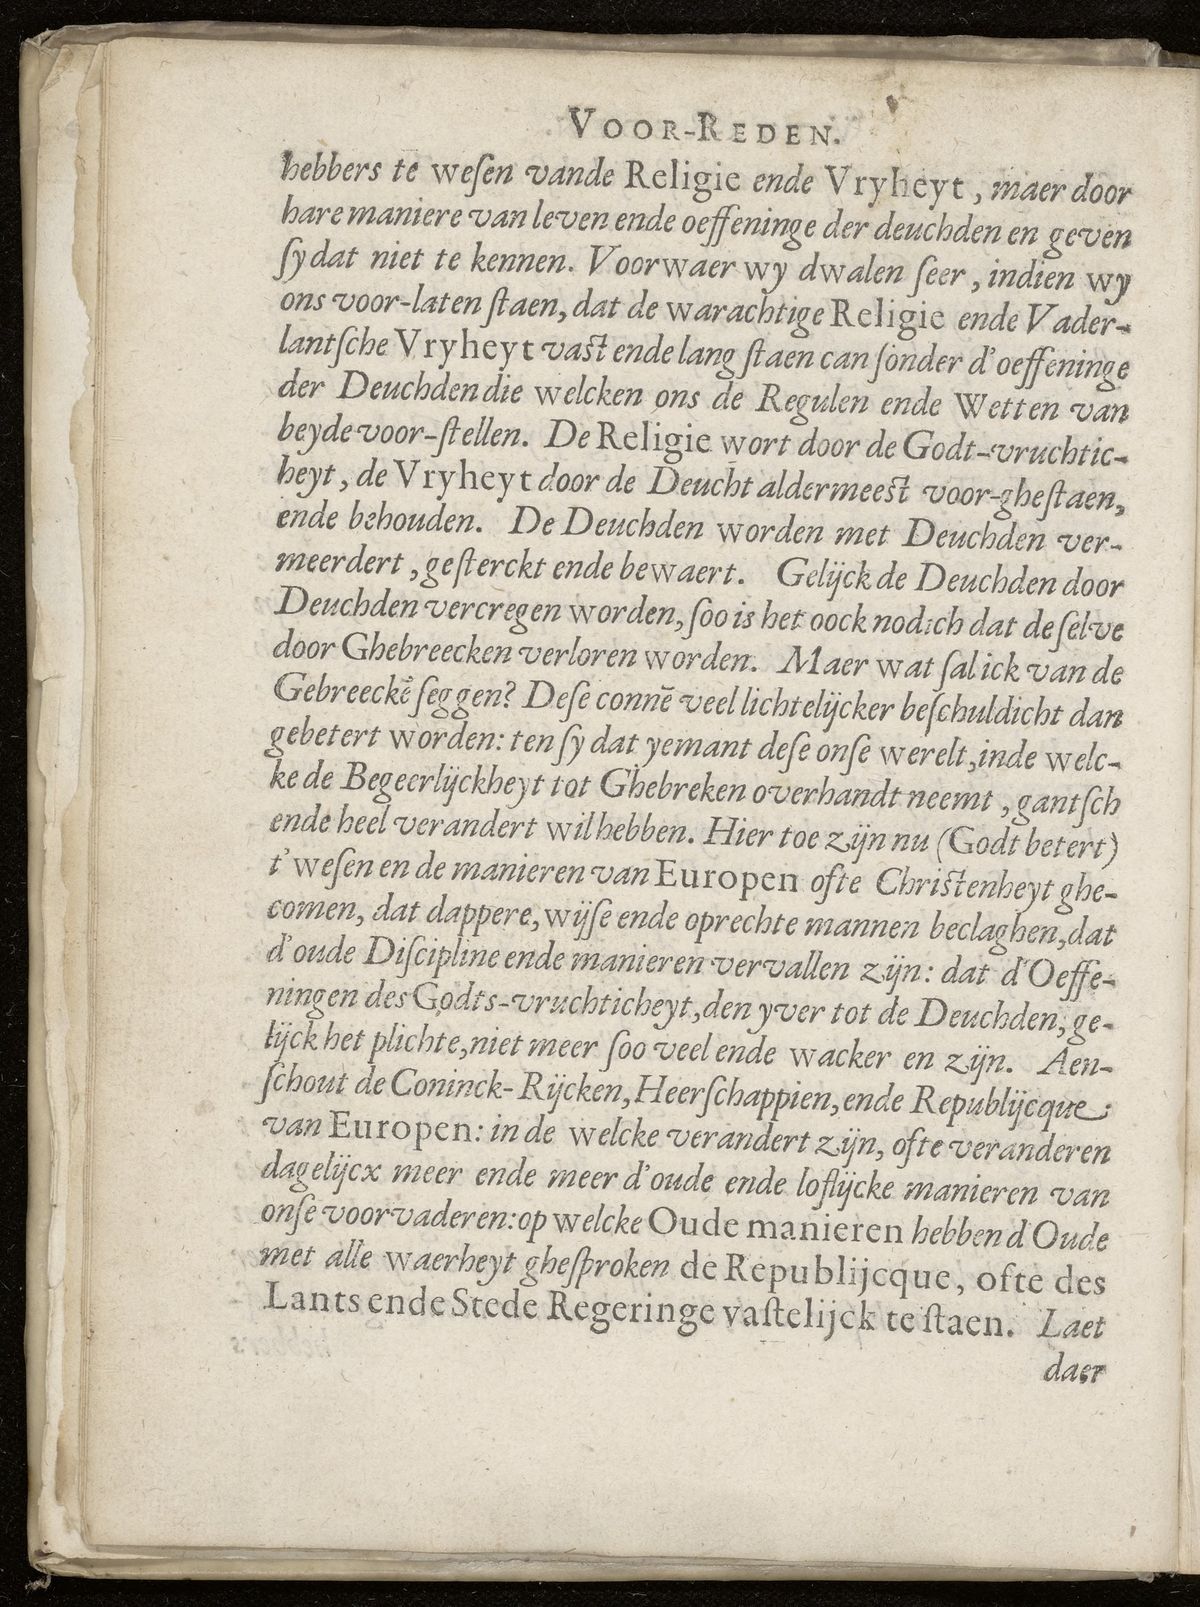 VOOR-REDEN.
hebbers te weſen vande Religie ende Vryheyt, maer door
hare maniere van leven ende oeffeninge der deuchden en geven
ſy dat niet te kennen. Voorwaer wy dwalen ſeer, indien wy
ons voor-laten ſtaen, dat de warachtige Religie ende Vader-
lantſche Vryheyt vast ende lang ſtaen can ſonder d'oeffeninge
der Deuchden die welcken ons de Regulen ende Wetten van
beyde voor-ſtellen. De Religie wort door de Godt-vruchtic-
heyt, de Vryheyt door de Deucht aldermeest voor-gheſtaen,
ende behouden. De Deuchden worden met Deuchden ver-
meerdert, geſterckt ende bewaert. Gelijck de Deuchden door
Deuchden vercregen worden, ſoo is het oock nodich dat deſelve
door Ghebreecken verloren worden. Maer wat ſal ick van de
Gebreeckē ſeggen? Deſe connē veel lichtelijcker beſchuldicht dan
gebetert worden: ten ſy dat yemant deſe onſe werelt, inde welc-
ke de Begeerlijckheyt tot Ghebreken overhandt neemt, gantſch
ende heel verandert wil hebben. Hier toe zijn nu (Godt betert)
t'weſen en de manieren van Europen ofte Christenheyt ghe-
comen, dat dappere, wijſe ende oprechte mannen beclaghen, dat
d'oude Diſcipline ende manieren vervallen zijn: dat d'Oeffe-
ningen des Godts-vruchticheyt, den yver tot de Deuchden, ge-
lijck het plichte, niet meer ſoo veel ende wacker en zijn. Aen-
ſchout de Coninck-Rijcken, Heerſchappien, ende Republijcque
van Europen: in de welcke verandert zijn, ofte veranderen
dagelijcx meer ende meer d'oude ende loflijcke manieren van
onſe voorvaderen: op welcke Oude manieren hebben d'Oude
met alle waerheyt gheſproken de Republijcque, ofte des
Lants ende Stede Regeringe vaſtelijck te ſtaen. Laet
daer